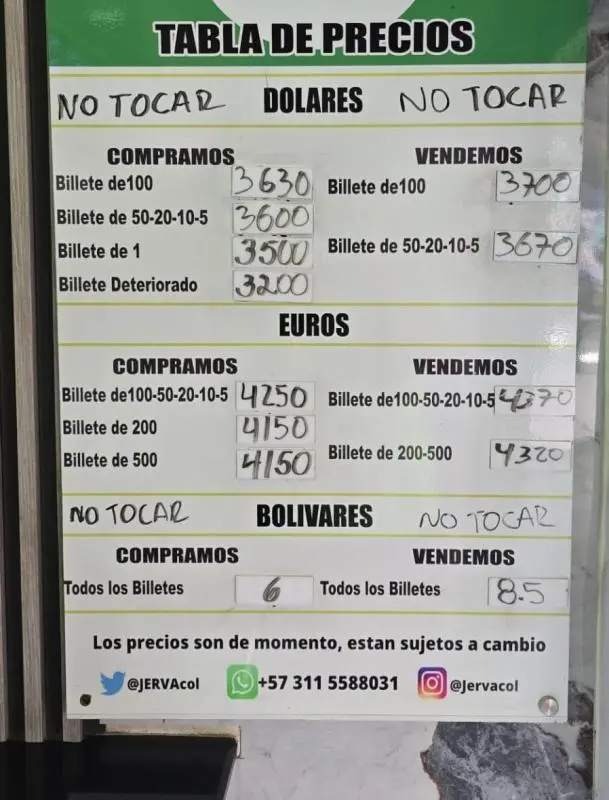 TABLA DE PRECIOS
NO TOCAR DOLARES NO TOCAR
COMPRAMOS VENDEMOS
Billete de100 3630 Billete de100 3700
Billete de 50-20-10-5 3600
Billete de 1 3500 Billete de 50-20-10-5 3670
Billete Deteriorado 3200
EUROS
COMPRAMOS VENDEMOS
Billete de100-50-20-10-5 4250 Billete de100-50-20-10-5 4370
Billete de 200 4150
Billete de 500 4150 Billete de 200-500 4320
NO TOCAR BOLIVARES NO TOCAR
COMPRAMOS VENDEMOS
Todos los Billetes 6 Todos los Billetes 8.5
Los precios son de momento, estan sujetos a cambio
@JERVAcol +57 311 5588031 @Jervacol